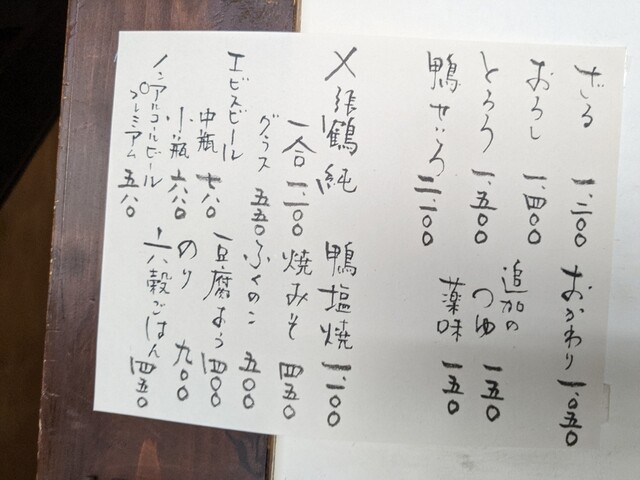 ざる 一、二〇〇
おろし 一、四〇〇
とろろ 一、五〇〇
鴨せいろ 二、一〇〇
おかわり 一、〇五〇
追加の
つゆ 一五〇
薬味 一五〇
〆張鶴 純
一合 一、二〇〇
グラス 五五〇
エビスビール
中瓶 七八〇
小瓶 六八〇
ノンアルコールビール
プレミアム 五八〇
鴨塩焼 一、一〇〇
焼みそ 四五〇
ふくのこ 五〇〇
豆腐よう 四〇〇
のり 九〇〇
十六穀ごはん 四五〇